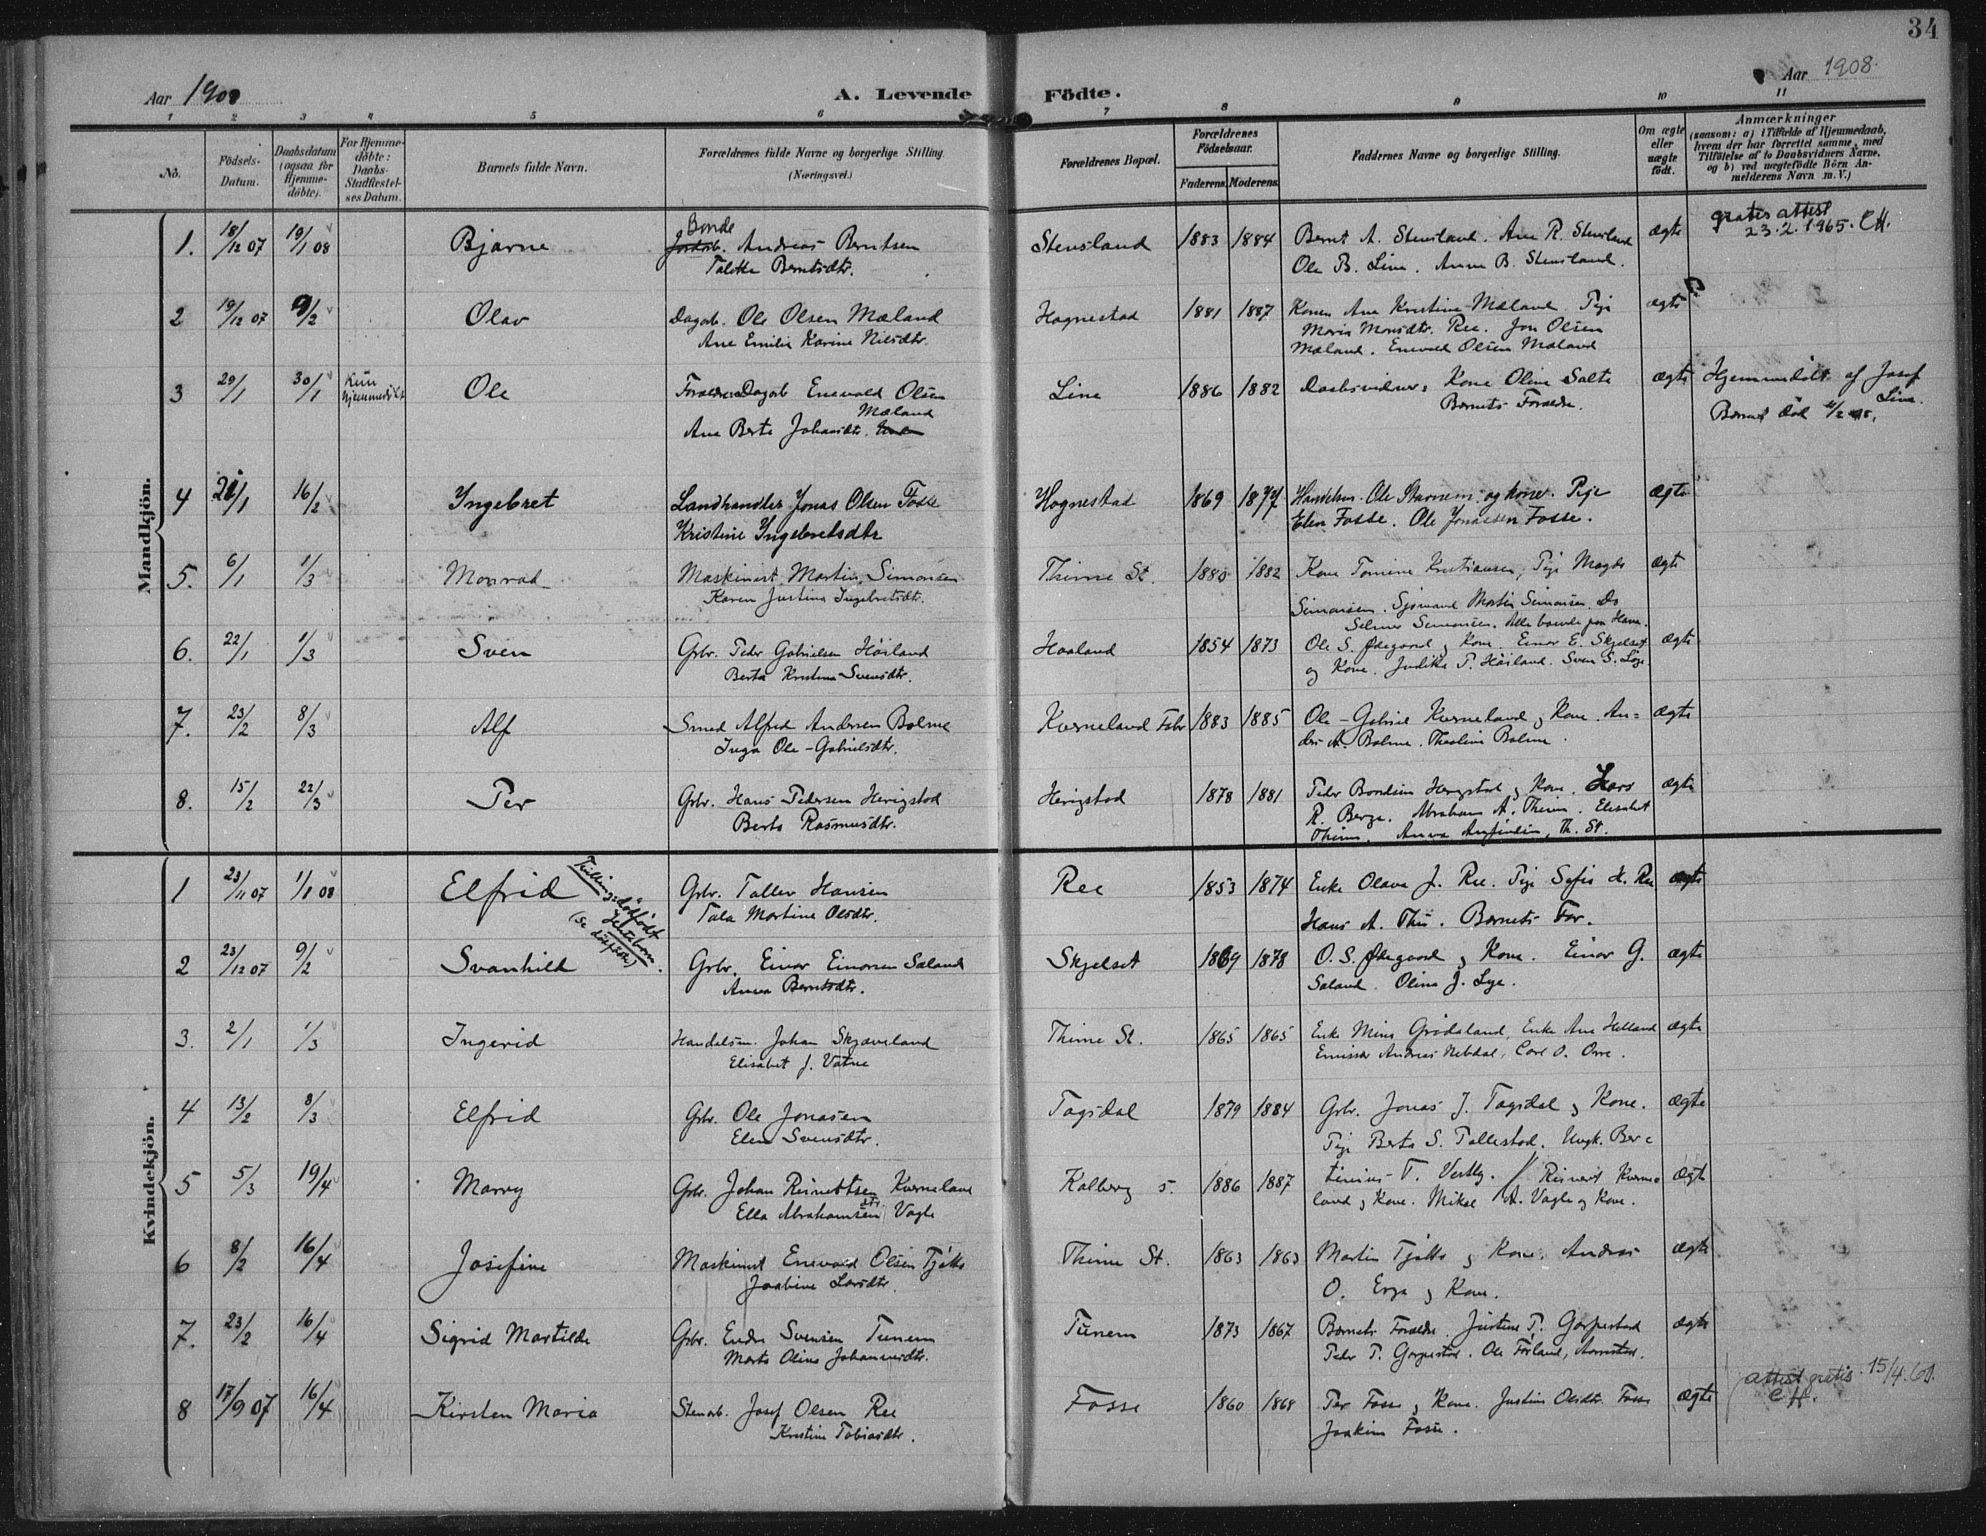 34
Aar 1908
A. Levende Födte.
Aar 1908.
1 2 3 4 5 6 7 8 9 10 11
No.
Födsels-
Datum.
Daabsdatum
(ogsaa for
Hjemme-
döbte).
For Hjemme-
döbte:
Daabs-
Stadfæstel-
ses Datum.
Barnets fulde Navn.
Forældrenes fulde Navne og borgerlige Stilling
(Næringsvei.)
Forældrenes Bopæl.
Forældrenes
Födselsaar.
Faderens. Moderens.
Faddernes Navne og borgerlige Stilling.
Om ægte
eller
uægte
födt.
Anmærkninger
(saasom: a) i Tilfælde af Hjemmedaab,
hvem der har forrettet samme, med
Tilföielse af to Daabsvidners Navne,
og b) ved uægtefödte Börn An-
melderens Navn m. V.)
Mandkjön.
1. 18/12 07 19/1 08 Bjarne Bonde Jordarb. Andreas Berntsen Stensland 1883 1884 Bernt A. Stensland. Ane R. Stensland ægte gratis attest
Talette Berntsdtr. Ole B. Line. Anna B. Stensland. 23.2.1965. CH.
2 19/12 07 9/2 Olav Dagarb. Ole Olsen Mæland Hognestad 1881 1887 Konen Ane Kristine Mæland. Pige ægte
Ane Emilie Karine Nilsdtr. Maria Monsdtr. Ree. Jon Olsen
Mæland. Enevald Olsen Mæland
3 29/1 30/1 Kun hjemmedöbt Ole Forældre: Dagarb Enevald Olsen Line 1886 1882 Daabsvidner: Kone Oline Salte ægte Hjemmedöbt af Josef
Mæland Barnets Forældre. Line.
Ane Berte Johansdtr. Barnet död
4 21/1 16/2 Ingebret Landhandler Jonas Olsen Fosse Hognestad 1869 1877 Handelsm. Ole Stavnem og kone. Pige ægte
Kristine Ingebretsdtr Elen Fosse. Ole Jonassen Fosse.
5. 6/1 1/3 Monrad Maskinist Martin Simonsen Thime St. 1880 1882 Kone Tomine Kristiansen, Pige Magda ægte
Karen Justine Ingebretsdtr. Simonsen. Sjömand Martin Simonsen. Do
Selmer Simonsen. Alle boende paa Hana.
6. 22/1 1/3 Sven Grbr. Peder Gabrielsen Höiland Haaland 1854 1873 Ole S. Ødegaard & Kone. Einar E. Skjelset ægte
Berta Kristina Svensdtr. og Kone. Judika P. Höiland. Sven S. Lye
7. 23/2 8/3 Alf Smed Alfred Andersen Bolme Kverneland Fabr 1883 1885 Ole-Gabriel Kverneland & Kone. An- ægte
Inga Ole-Gabrielsdtr. ders A. Bolme. Theoline Bolme.
8. 15/2 22/3 Per Grbr. Hans Pedersen Herigstad Herigstad 1878 1881 Peder Herigstad & Kone. Lars ægte
Berta Rasmusdtr. R. Berge. Abraham A. Thime. Elisabet
Thime. Anna Th. St.
Kvindekjön.
1 23/11 07 1/1 08 Elfrid Grbr. Tallev Hansen Ree 1853 1874 Enke Olava J. Ree. Pige Sofie H. Ree ægte
Tvilling: dödfödt
(se
Tala Martine Olsdtr. Hans A. Thu. Barnets Far.
2 23/12 07 9/2 Svanhild Grbr. Einar Einarsen Saland Skjelset 1869 1878 O. S. Ødegaard & Kone. Einar G. ægte
Anna Berntsdtr. Saland. Olina J. Lye.
3. 2/1 1/3 Ingerid Handelsm. Johan Skjæveland Thime St. 1865 1865 Enke Mina Grödaland, Enke Ane Helland ægte
Elisabet J. Vatne Emissær Andreas Nebdal, Carl O. Orre.
4 13/2 8/3 Elfrid Grbr. Ole Jonasen Tagsdal 1879 1884 Grbr. Jonas J. Tagsdal & Kone. ægte
Elen Svensdtr. Pige Berta S. Tallestad. Ungk. Ber-
5 5/3 19/4 Marry Grbr. Johan Reinertsen Kverneland Kalberg s. 1886 1887 tinius T. Vestly. // Reinert Kverne- ægte
Ella Abrahamsen dtr. Vagle land & Kone. Mikal A. Vagle og Kone.
6 8/2 16/4 Josefine Maskinist Enevald Olsen Tjötta Thime St. 1863 1863 Martin Tjötta & Kone. Andreas ægte
Joakine Larsdtr. O. Erga & Kone.
7. 23/2 16/4 Sigrid Martilde Grbr. Endre Svensen Tunem Tunem 1873 1867 Barnets Forældre. Justine P. Garpestad ægte
Marta Olina Johannesdtr. Peder P. Garpestad. Ole Förland,
8 17/9 07 16/4 Kirsten Maria Stenarb. Josef Olsen Ree Fosse 1860 1868 Per Fosse & Kone. Justine Olsdtr. Fosse ægte attest gratis. 15/4.60.
Kristine Tobiasdtr. Joakim Fosse. CH.